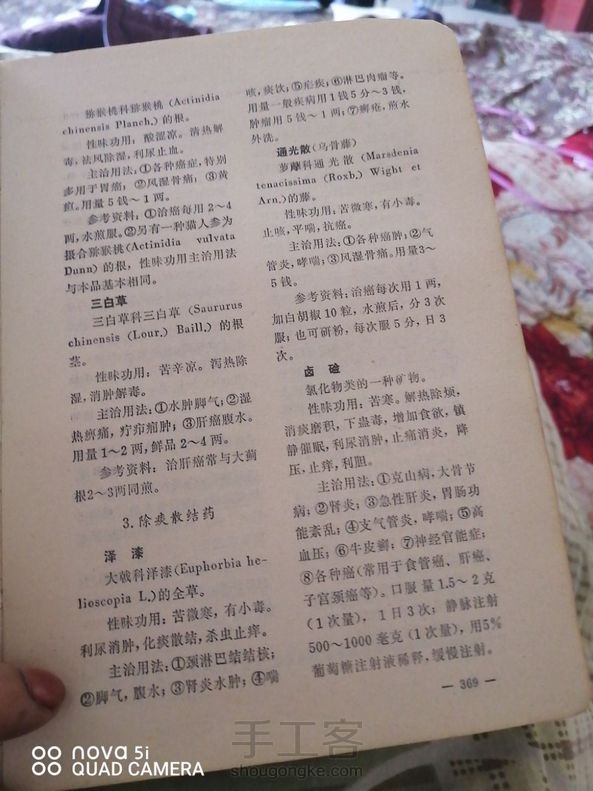 猕猴桃科猕猴桃 (Actinidia
chinensis Planch.) 的根。
性味功用: 酸涩凉。清热解
毒,祛风除湿,利尿止血。
主治用法:①各种癌症,特别
多用于胃癌; ②风湿骨痛; ③黄
疸。用量 5 钱～1 两。
参考资料: ①治癌每用 2～4
两,水煎服。②另有一种猫人参为
摄合猕猴桃(Actinidia vulvata
Dunn) 的根, 性味功用主治用法
与本品基本相同。
三白草
三白草科三白草 (Saururus
chinensis (Lour.) Baill.) 的根
茎。
性味功用: 苦辛凉。泻热除
湿,消肿解毒。
主治用法:①水肿脚气;②湿
热痹痛,疔疖痈肿;③肝癌腹水。
用量 1～2 两,鲜品 2～4 两。
参考资料: 治肝癌常与大蓟
根2～3两同煎。
3.除痰散结药
泽 漆
大戟科泽漆(Euphorbia he-
lioscopia L.)的全草。
性味功用: 苦微寒, 有小毒。
利尿消肿,化痰散结,杀虫止痒。
主治用法:①颈淋巴结结核;
②脚气,腹水;③肾炎水肿;④喘
咳,痰饮;⑤疟疾;⑥淋巴肉瘤等。
用量一般疾病用1钱5分～3钱,
肿瘤用 5 钱～1 两;⑦癣疮,煎水
外洗。
通光散(乌骨藤)
萝藦科通光散 (Marsdenia
tenacissima (Roxb.) Wight et
Arn.)的藤。
性味功用:苦微寒,有小毒。
止咳,平喘,抗癌。
主治用法:①各种癌肿;②气
管炎,哮喘;③风湿骨痛。用量3～
5 钱。
参考资料:治癌每次用 1 两,
加白胡椒10粒,水煎后,分 3 次
服;也可研粉,每次服 5 分,日 3
次。
卤 硷
氯化物类的一种矿物。
性味功用:苦寒。解热除烦,
消痰磨积,下蛊毒,增加食欲,镇
静催眠,利尿消肿,止痛消炎, 降
压,止痒,利胆。
主治用法:①克山病,大骨节
病;②肾炎;③急性肝炎,胃肠功
能紊乱;④支气管炎,哮喘;⑤高
血压;⑥牛皮癣;⑦神经官能症;
⑧各种癌(常用于食管癌、肝癌、
子宫颈癌等)。口服量1.5～2克
(1次量), 1日3次; 静脉注射
500～1000 毫克(1次量),用5%
葡萄糖注射液稀释,缓慢注射。
— 369 —
nova 5i
QUAD CAMERA
手工客
shougongke.com